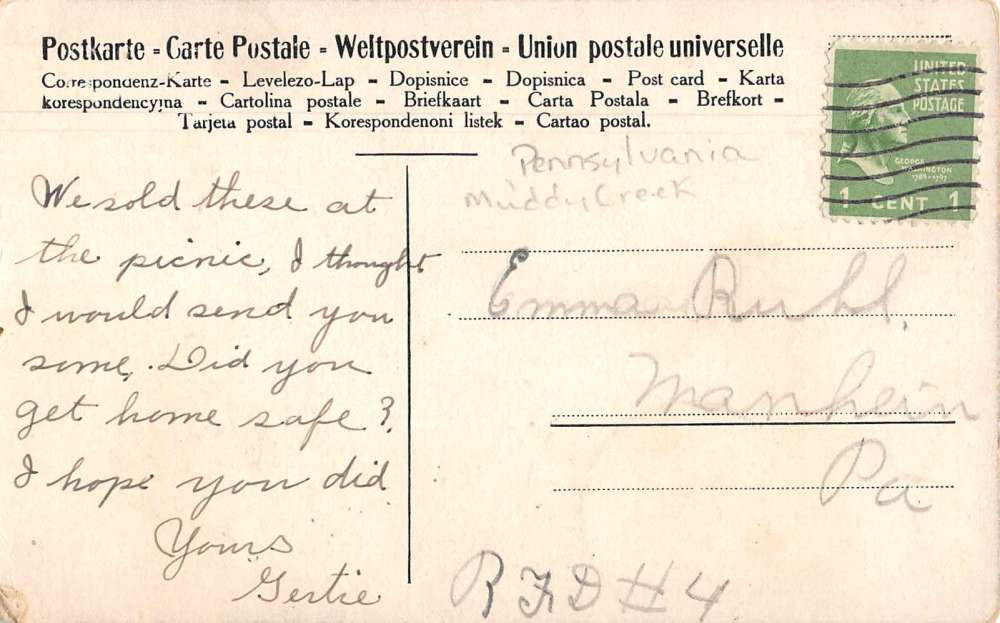 Postkarte - Carte Postale - Weltpostverein - Union postale universelle
Correspondenz-Karte - Levelezo-Lap - Dopisnice - Dopisnica - Post card - Karta
korespondencyjna - Cartolina postale - Briefkaart - Carta Postala - Brefkort -
Tarjeta postal - Korespondenoni listek - Cartao postal.
UNITED
STATES
POSTAGE
GEORGE
WASHINGTON
1789-1797
1 CENT 1
Pennsylvania
Muddy Creek
We sold these at
the picnic, I thought
I would send you
some, . Did you
get home safe?
I hope you did
Yours
Gertie
Emma Ruhl,
Manheim
Pa
R F D # 4